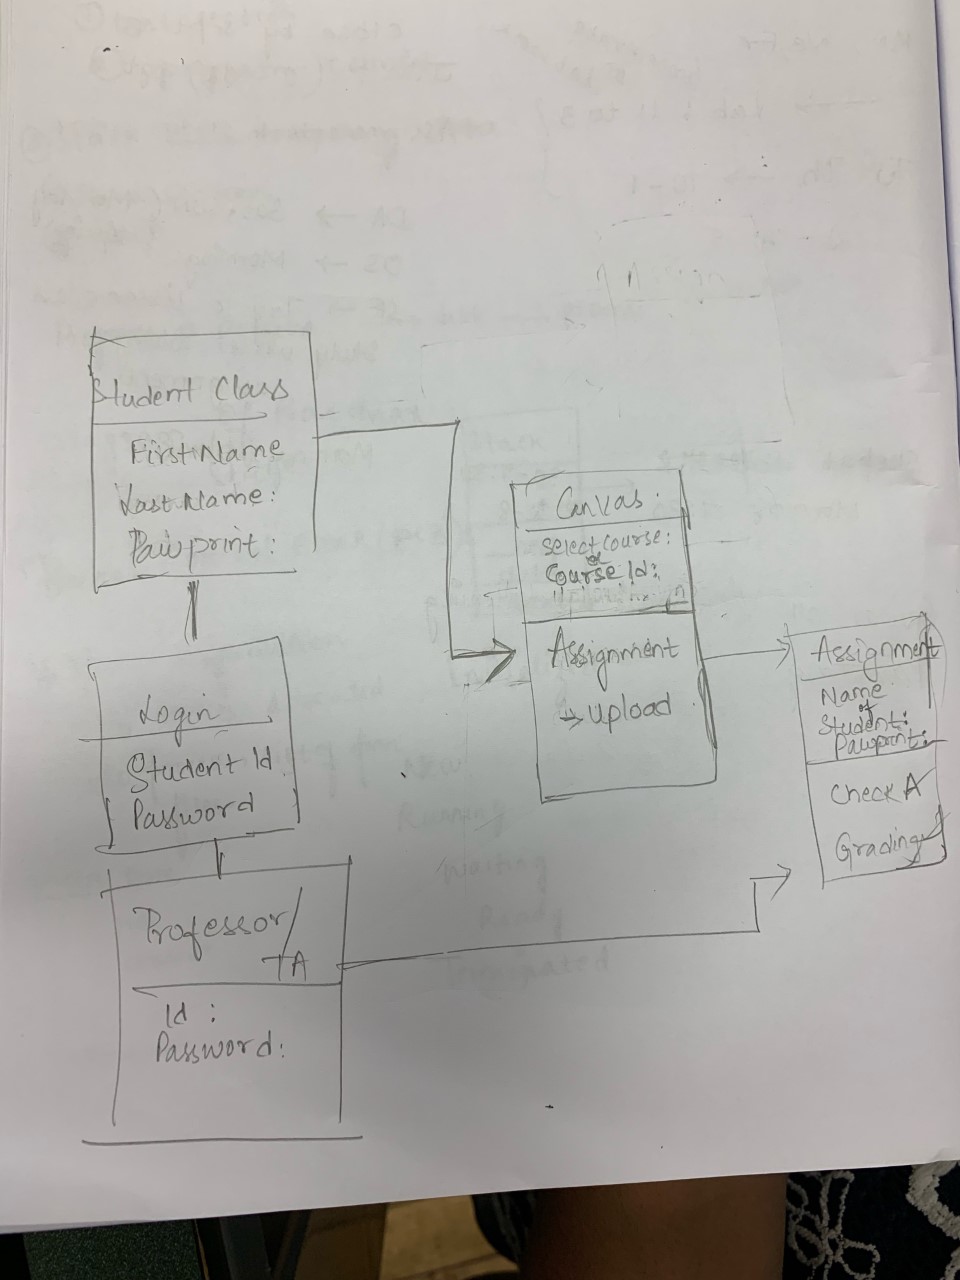 Student Class
First Name
Last Name:
Pawprint:
Login
Student Id
Password
Professor/
TA
Id :
Password:
Canvas:
Select Course:
or
Course Id:
Assignment
→ Upload
Assignment
Name
of
Student:
Pawprint:
Check A
Grading